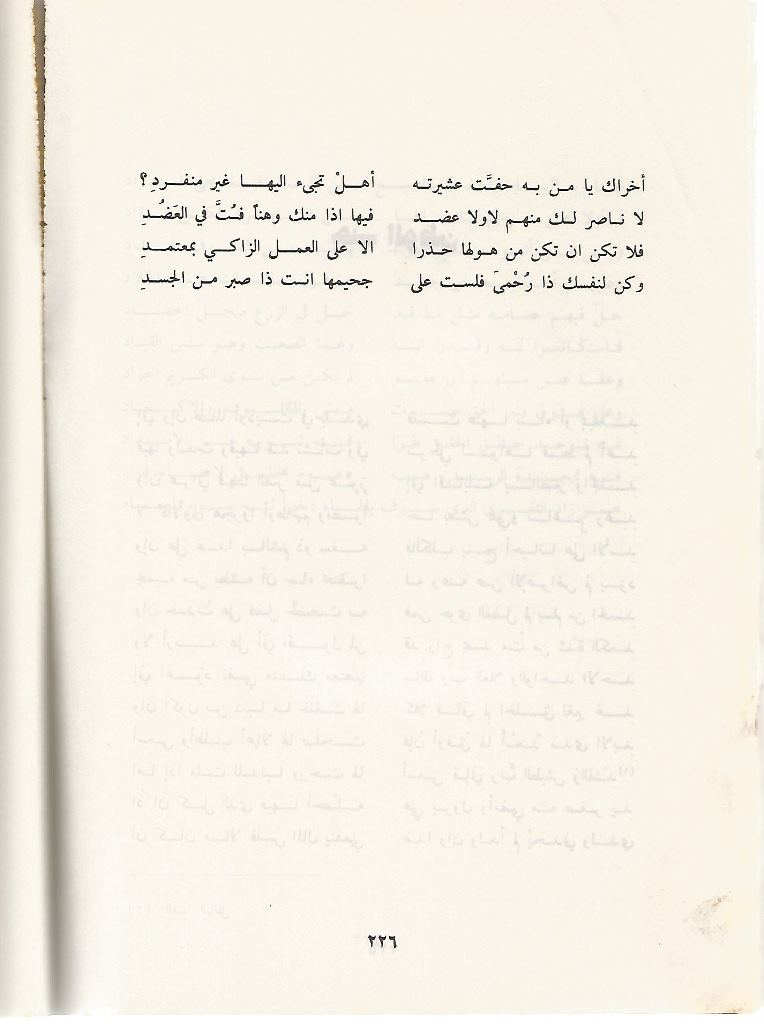 أخراك يا من به حفَّت عشيرته أهلْ تجيء اليها غير منفردِ؟
لا ناصر لك منهم لاولا عضد فيها اذا منك وهناً فُتَّ في العَضُدِ
فلا تكن ان تكن من هولها حذرا الا على العمل الزاكي بمعتمدِ
وكن لنفسك ذا رُحْمىَ فلست على جحيمها انت ذا صبر من الجسدِ
٢٢٦